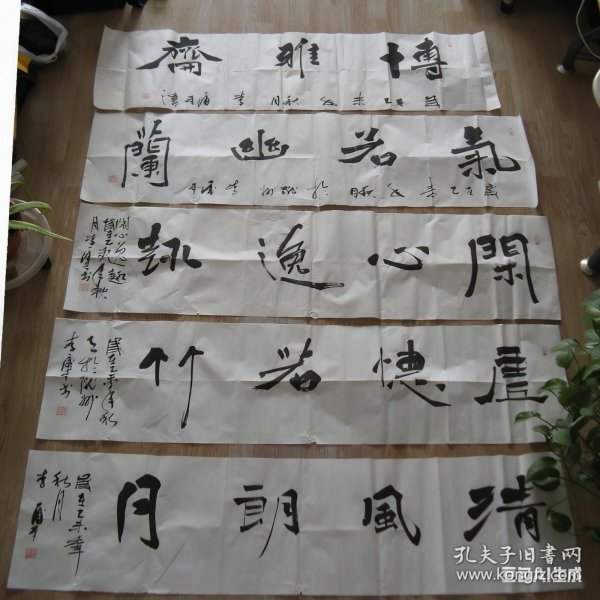 博雅齋
歲在乙未年秋月李
氣若幽蘭
歲在乙未年秋月於
閑心逸趣
閑心逸趣
歲在乙未年秋
月李
虛懷若竹
歲在乙未年秋
月於
李
清風朗月
歲在乙未年
秋月
李
孔夫子旧书网
www.kongfz.com
豆豆AI生成